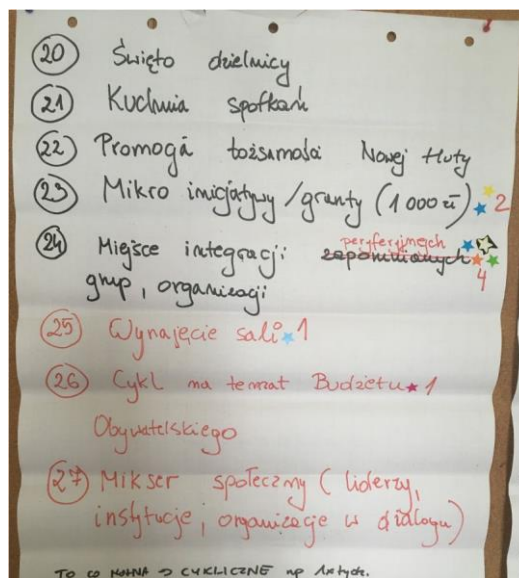 20 Święto dzielnicy
21 Kuchnia spotkań
22 Promocja tożsamości Nowej Huty
23 Mikro inicjatywy/granty (1000 zł) 2
peryferyjnych
24 Miejsce integracji zapomnianych 4
grup, organizacji
25 Wynajęcie sali 1
26 Cykl na temat Budżetu 1
Obywatelskiego
27 Mikser społeczny (liderzy,
instytucje, organizacje w dialogu)
TO CO WAŻNA → CYKLICZNE np 1x tydz.